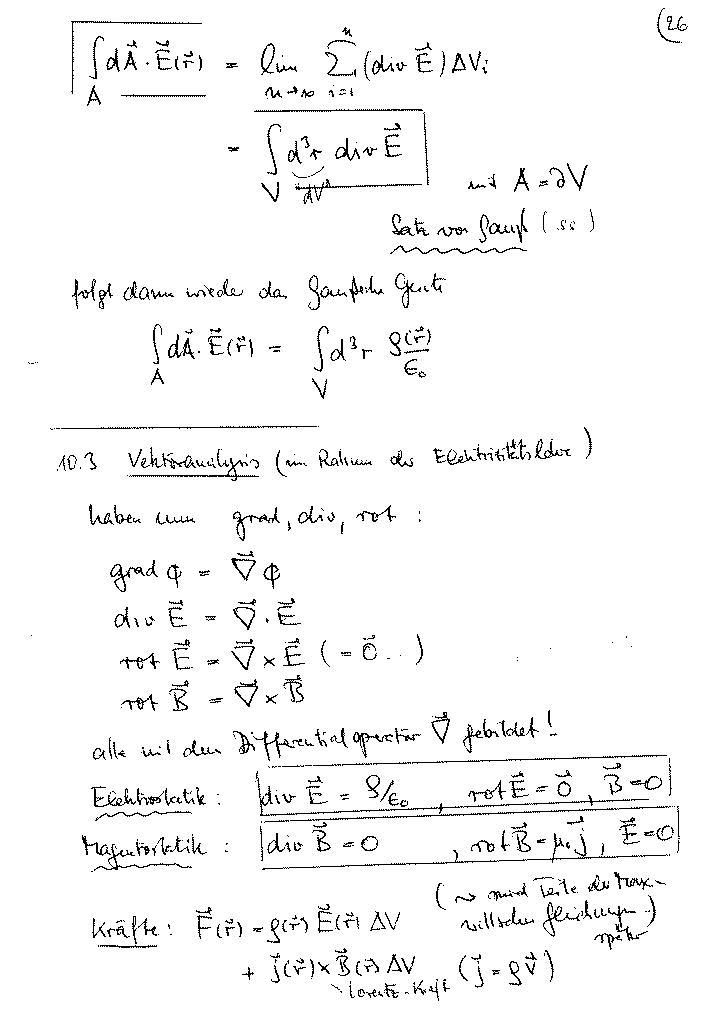 (26
∫_A dA⃗ · E⃗(r⃗) = lim_{n→∞} Σ_{i=1}^{n} (div E⃗) ΔV_i
= ∫_V d³r div E⃗
dV
mit A = ∂V
Satz von Gauß (.ss)
folgt dann wieder das Gaußsche Gesetz
∫_A dA⃗ · E⃗(r⃗) = ∫_V d³r ρ(r⃗)/ε₀
10.3 Vektoranalysis (im Rahmen der Elektrizitätslehre)
haben nun grad, div, rot :
grad φ = ∇⃗ φ
div E⃗ = ∇⃗ · E⃗
rot E⃗ = ∇⃗ × E⃗ ( = 0⃗ .. )
rot B⃗ = ∇⃗ × B⃗
alle mit dem Differentialoperator ∇⃗ gebildet!
Elektrostatik : div E⃗ = ρ/ε₀ , rot E⃗ = 0⃗ , B⃗ = 0
Magnetostatik : div B⃗ = 0 , rot B⃗ = μ₀ j⃗ , E⃗ = 0
(↝ sind Teile der Max-
wellschen Gleichungen)
später
Kräfte : F⃗(r⃗) = ρ(r⃗) E⃗(r⃗) ΔV
+ j⃗(r⃗) × B⃗(r⃗) ΔV (j⃗ = ρ v⃗)
Lorentz-Kraft